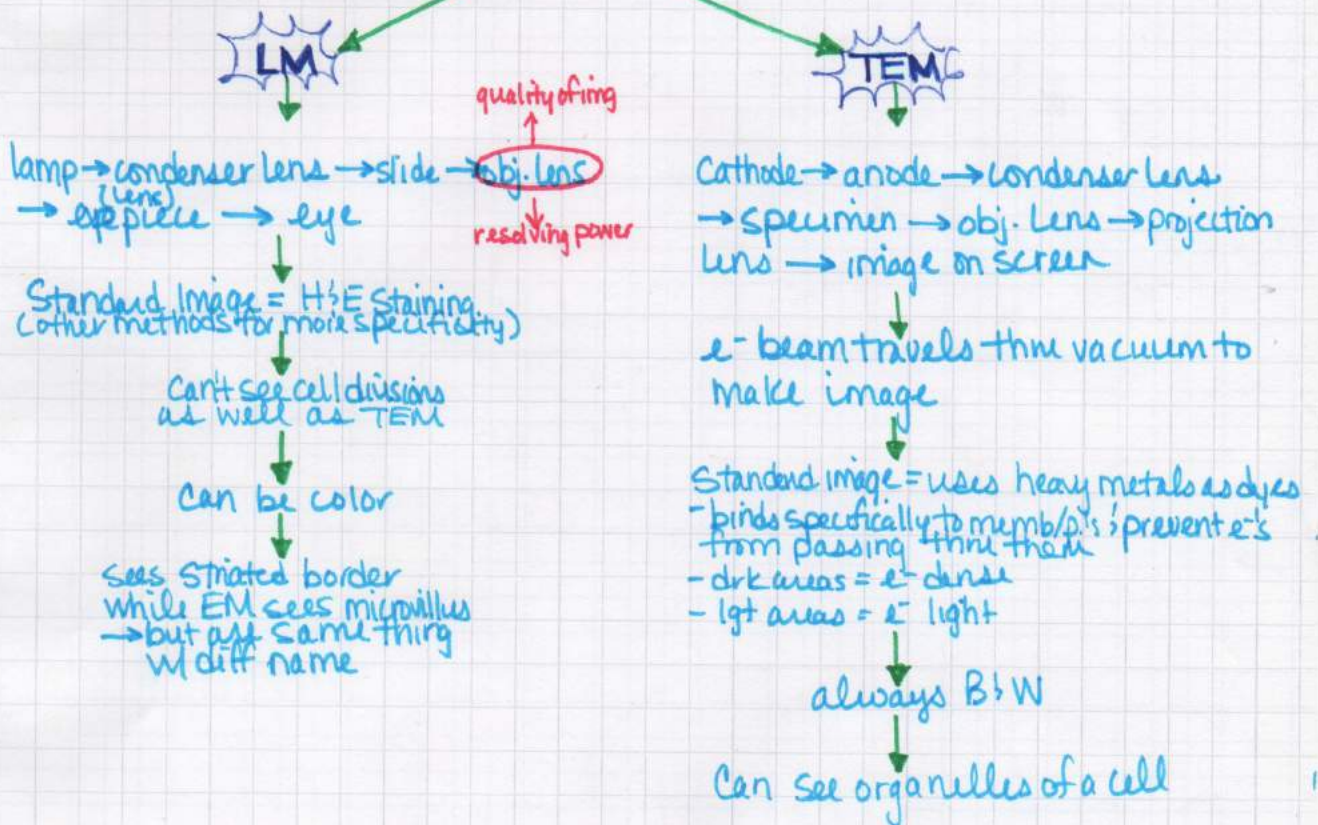 LM
quality of img
lamp → condenser lens → slide → obj. lens
(lens)
→ eyepiece → eye
resolving power
Standard Image = H&E Staining
(other methods for more specificity)
Can't see cell divisions
as well as TEM
Can be color
sees striated border
while EM sees microvillus
→ but are same thing
w/ diff name
TEM
Cathode → anode → condenser lens
→ specimen → obj. Lens → projection
lens → image on screen
e⁻ beam travels thru vacuum to
make image
Standard image = uses heavy metals as dyes
- binds specifically to memb/p.'s & prevent e⁻s
from passing thru them
- drk areas = e⁻ dense
- lgt areas = e⁻ light
always B&W
Can see organelles of a cell